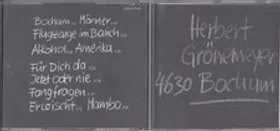 Bochum... Männer...
Flugzeuge im Bauch...
Alkohol... Amerika...
Für Dich da...
Jetzt oder nie...
Fangfragen...
Erwischt... Mambo...
Herbert
Grönemeyer
4630 Bochum